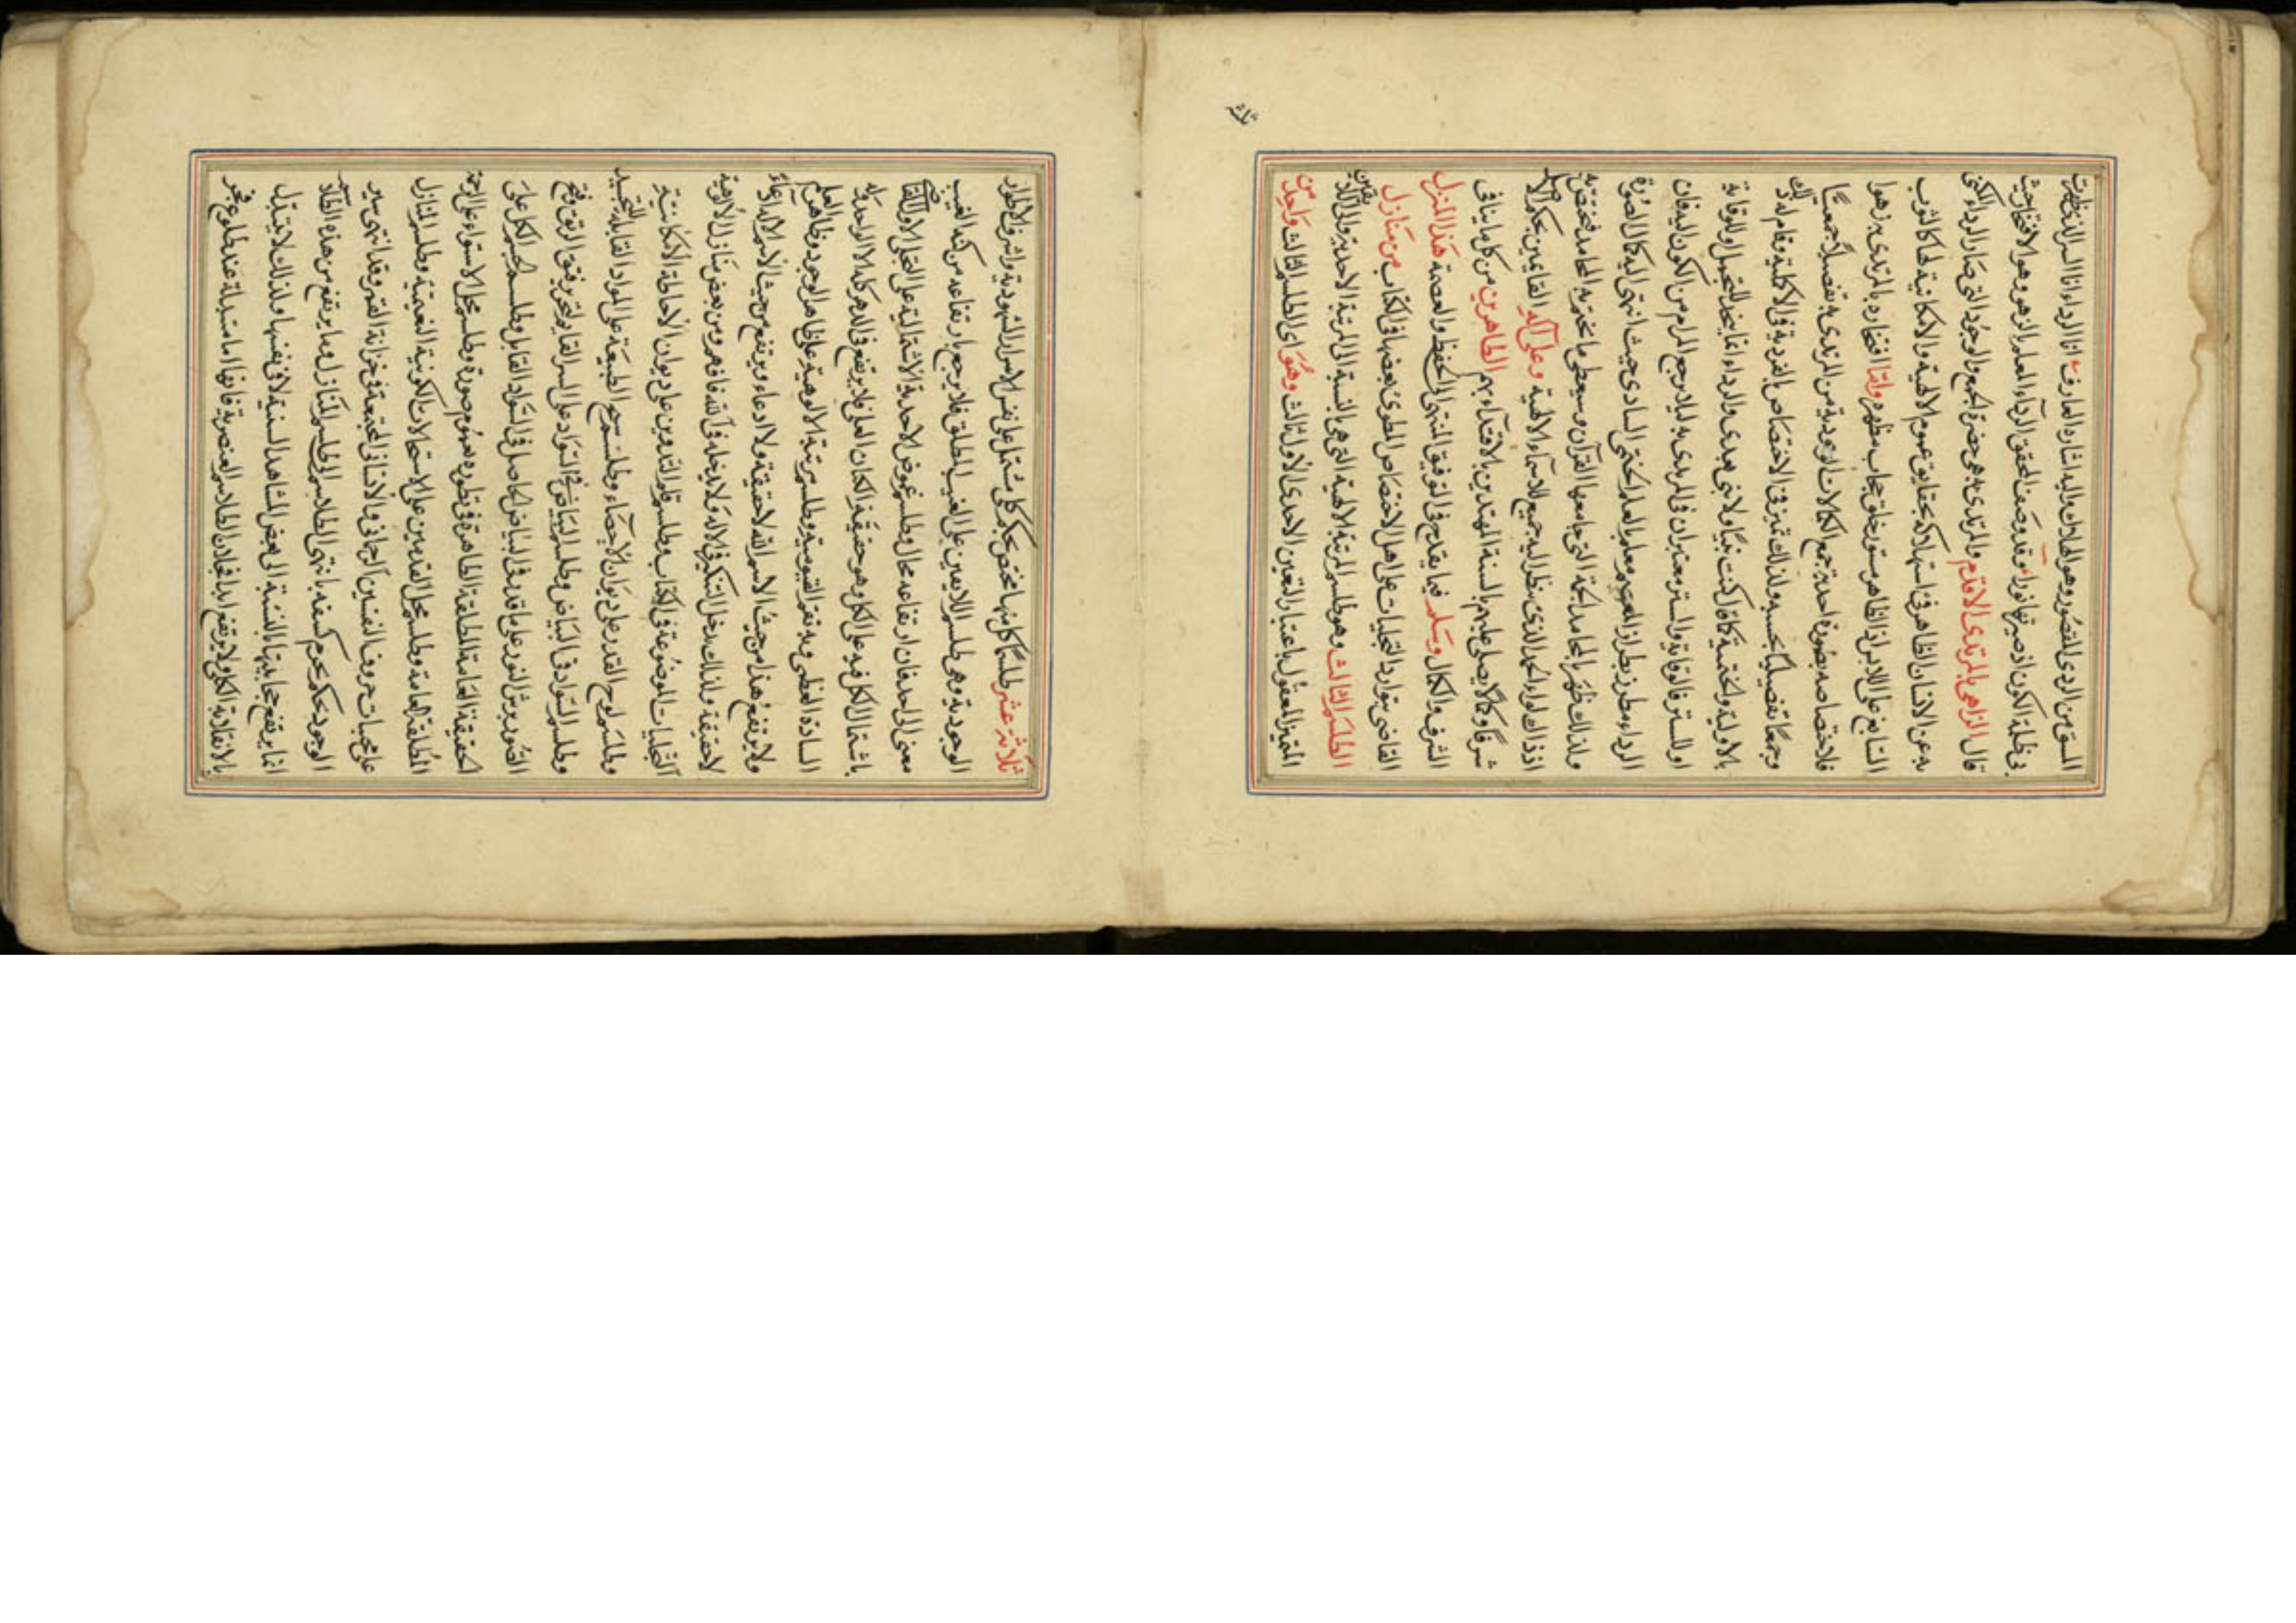 السوى من الردى المقصور وهو الهلاك واليه اشار العارف انا الرداء انا السر الذى ظهرت
بى ظلمة الكون اذ صيرتها نورا وقد وصف المحقق الرداء المعلم بالزهو وهو الافتخار حيث
قال الزاهى بالمرتدى الاقدم والمرتدى به هى حضرة الجمع والوجود التى صار الرداء المكنى
به عن الانسان الظاهر فى استهلاكه بحقايق عموم الالهية والامكانية لها كالثوب
السابغ على اللابس اذ الظاهر مستور خلف حجاب مظهره وانما افتخاره بالمرتدى به زهوا
فلاختصاصه بصورة احدية جمع الكمالات الوجودية من المرتدى به تفصيلا جمعيا
وجمعا تفصيليا بحسبه ولذلك تميز فى الاختصاص بالفردية فى الاكملية وقام له ذلك
بالاولية والختمية كنت نبيا ولا نبى بعدى والرداء انما يتخذ للتجمل او للوقاية
او للستر فالوقاية والستر معتبران فى المرتدى به ليلا يرجع من الكون اليه فان
الرداء مطرز بطراز معلم بالعلم الختمى حيث انتهى اليه كمال الصورة
ولذلك ظهر بالمحامد الجمة التى جامعها القرآن وسيعطى ما تختم به المحامد فيختص به
اذ ذاك لواء الحمد الذى ينظر اليه جميع الاسماء الالهية وعلى آله القايمين بحكم الاصل
شرفا وكمالا يصلى عليهم بالسنة المهتدين بالاقتداء بهم الطاهرين من كل ما ينافى
الشرف والكمال وسلم فيما يقدح فى التوفيق المنتهى الى الحفظ والعصمة هذا المنزل
القاضى بتوارد التجليات على اهل الاختصاص المطوى بعضها فى الكتاب من منازل
الطلسم الثالث وهو طلسم المرتبة الالهية التى هى بالنسبة الى المرتبة الاحدية والى اللاتعين
المتميز المعقول باعتبار التعين الاحدى الاول ثالث وهو اى الطلسم الثالث واحد من
ثلثة
ثلاثة عشر طلسما كل منها مختص بحكم كلى مشتمل على نفس الاسرار الشهودية واشرف الاطوار
الوجودية وهى طلسم اللاتعين على الغيب المطلق فلا يرجع بارتفاعه من كنه الغيب
معنى الى احد فان ارتفاعه محال وطلسم غموض الاحدية الاشتمالية على التجلى الاول
باشتمال الكل فيه على الكل وهو حقيقة الكان العلى فلا يرتفع فى الدهر كله الا لواحد
السادة العظمى وبه نفوذ القيوميته وطلسم مرتبة الالوهية على ظاهر الوجود وظاهر العلم
ولا يرتفع هذا من حيث الاسم الله لا حقيقة ولا ادعاء ويرتفع من حيث الاسم الاله ادعاء
لا حقيقة ولذلك يدخل التنكير فى الاله ولا يدخله فى الله فافهم ومن بعض منازل الالوهية
التجليات الموضوعة فى الكتاب وطلسم قلم التدوين على ديوان الاحاطة الامكانية
وطلسم لوح القدر على ديوان الاحصاء وطلسم الطبيعة على المواد القابلة للتجسيد
وطلسم السواد فى البياض وطلسم البياض فى السواد على السر القايم
الصور برش النور على ما قدر فى البياض الحاصل فى السواد القابل وطلسم الجسم الكل على
الحقيقة العامة المطلقة الظاهرة فى تطوره بعموم صورة وطلسم محل الاستواء على الرحمة
المطلقة العامة وطلسم محل القدمين على الاستحالات الكونية النعيمية وطلسم المنازل
على محيات حروف النفسين الرحمانى والانسانى المجتمعة فى خزانة القمر وقد انتهى سير
الوجود بحكم محرم كسفه بانتهى الطلاسم الى طلسم المنازل وما يرتفع من هذه الطلاسم
انما يرتفع حجابيتها بالنسبة الى بعض المشاهد السنية لا فى نفسها ولذلك لا يتبدل
بالانقلاب الكلى ولا يرتفع ابدا بخلاف الطلاسم العنصرية فانها متبدلة عند طلوع فجر